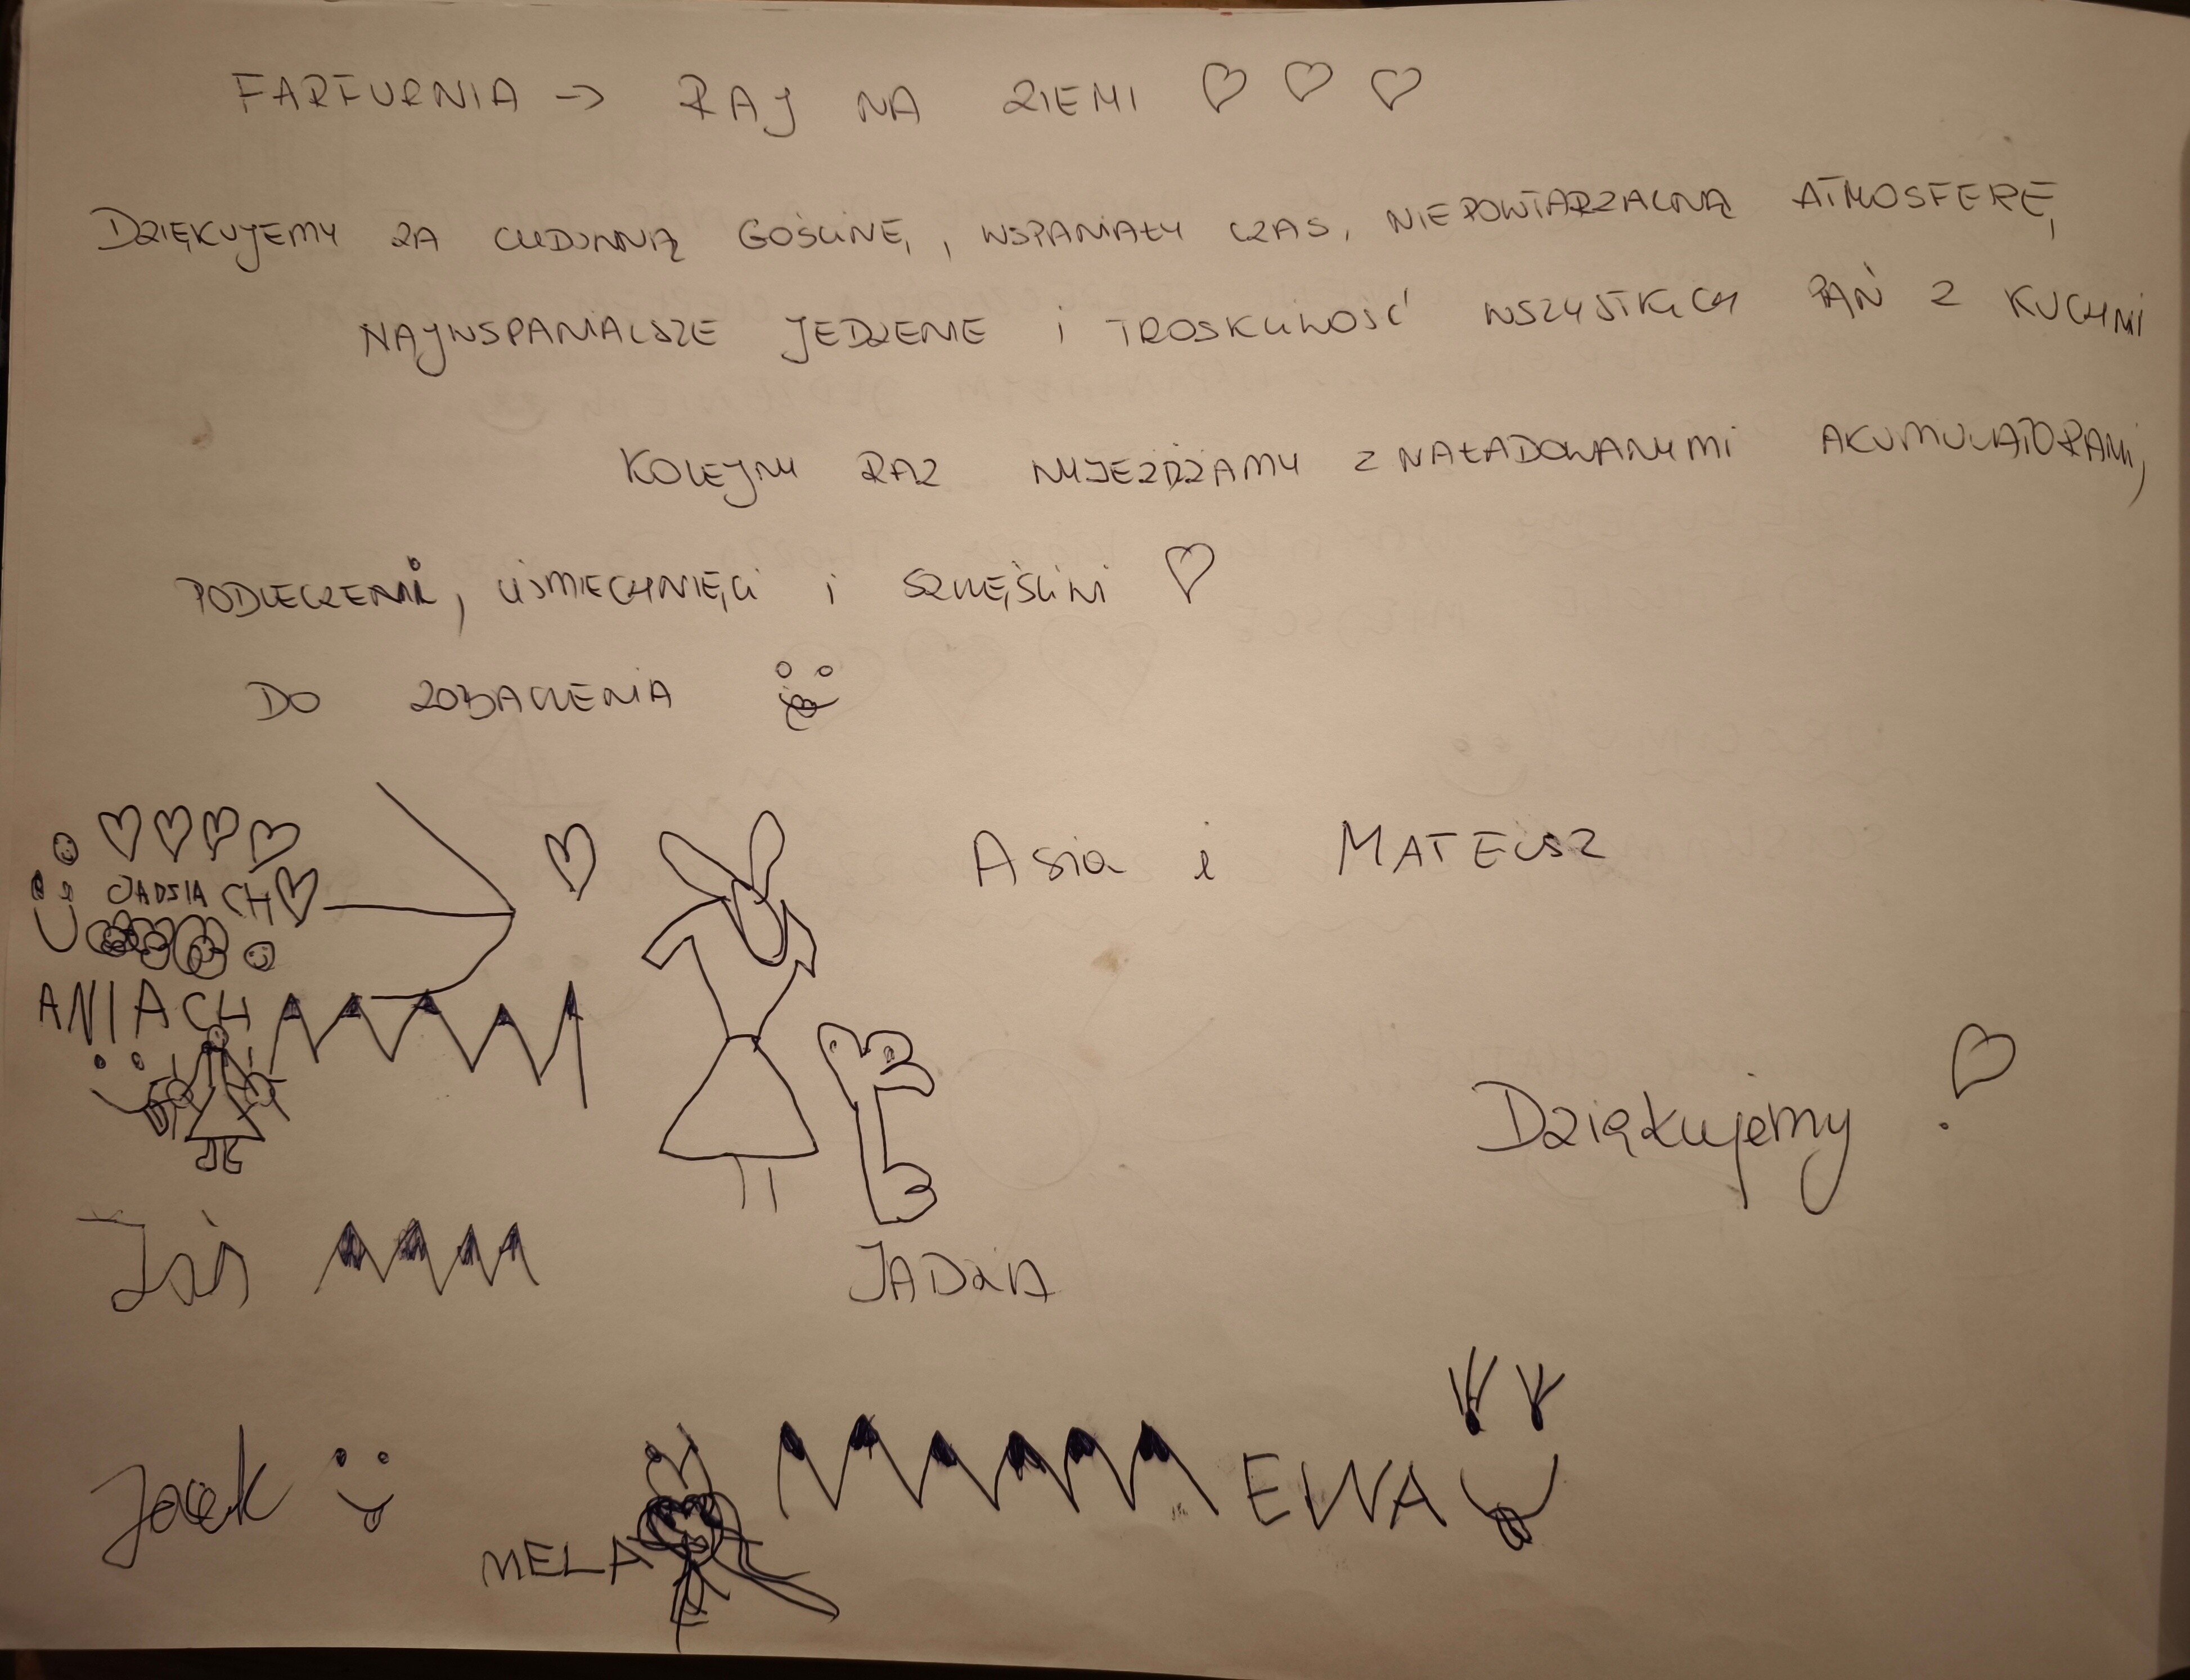 FARFURNIA → RAJ NA ZIEMI ♡ ♡ ♡
DZIĘKUJEMY ZA CUDOWNĄ GOŚCINĘ, WSPANIAŁY CZAS, NIEPOWTARZALNĄ ATMOSFERĘ,
NAJWSPANIALSZE JEDZENIE I TROSKLIWOŚĆ WSZYSTKICH PAŃ Z KUCHNI
KOLEJNY RAZ WYJEŻDŻAMY Z NAŁADOWANYMI AKUMULATORAMI,
PODLECZENI, UŚMIECHNIĘCI I SZCZĘŚLIWI ♡
DO ZOBACZENIA
Asia i MATEUSZ
JADSIA CH
ANIA CH
Dziękujemy
Jaś
JADZIA
Jacek
MELA
EWA